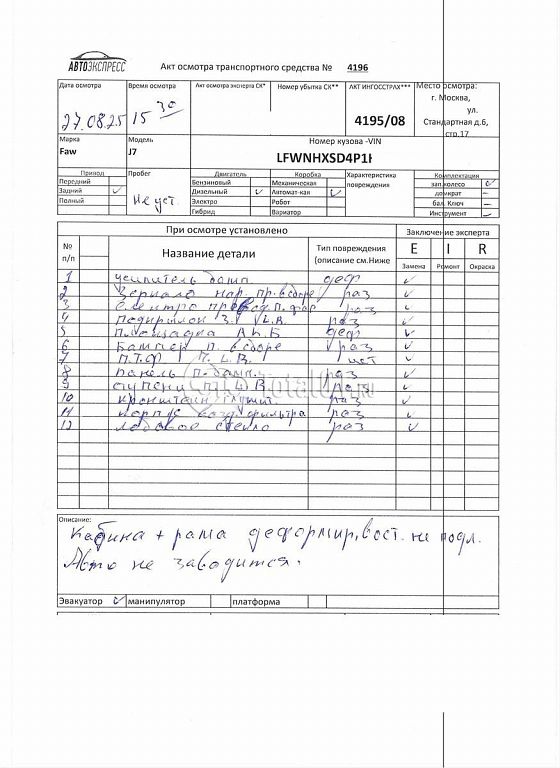 АВТОЭКСПРЕСС
Акт осмотра транспортного средства № 4196
Дата осмотра Время осмотра Акт осмотра эксперта СК* Номер убытка СК** АКТ ИНГОССТРАХ*** Место осмотра:
27.08.25 15 30 4195/08 г. Москва, ул. Стандартная д.6, стр.17
Марка Модель Номер кузова -VIN
Faw J7 LFWNHXSD4P1
Привод Пробег Двигатель Коробка Характеристика повреждения Комплектация
Передний Бензиновый Механическая зап.колесо ✓
Задний ✓ Не уст. Дизельный ✓ Автомат-кая ✓ домкрат –
Полный Электро Робот бал. Ключ –
Гибрид Вариатор Инструмент ✓
При осмотре установлено Заключение эксперта
№ п/п Название детали Тип повреждения (описание см.Ниже E I R
Замена Ремонт Окраска
1 усилитель бамп. деф ✓
2 Зеркало нар. пр. в сборе раз ✓
3 электро пров. п. фар раз ✓
4 Подкрылок L.R. раз ✓
5 Площадка АКБ деф ✓
6 Бампер п. в сборе раз ✓
7 П.Т.Ф П. L.R. ✓
8 Панель п. бамп. раз ✓
9 ступени п. L.R. раз ✓
10 Кронштейн раз ✓
11 Корпус возд. фильтра раз ✓
12 Лобовое стекло раз ✓
Описание:
Кабина + рама деформир, вост. не подл.
Авто не заводится.
Эвакуатор ✓ манипулятор платформа